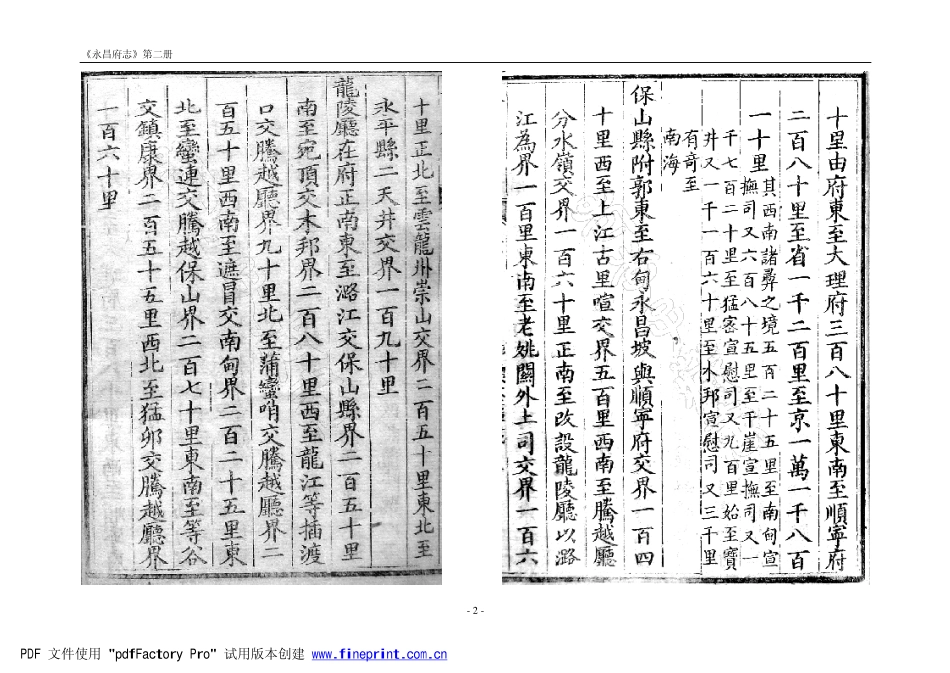 《永昌府志》第二册
十里由府東至大理府三百八十里東南至順寧府
二百八十里至省一千二百里至京一萬一千八百
一十里
其西南諸彝之境五百二十五里至南甸宣
撫司又六百八十五里至干崖宣撫司又一
千七百二十里至猛密宣慰司又九百里始至寶
井又一千一百六十里至木邦宣慰司又三千里
有奇至
南海
保山縣附郭東至右甸永昌坡與順寧府交界一百四
十里西至上江古里喧交界五百里西南至騰越廳
分水嶺交界一百六十里正南至改設龍陵廳以潞
江為界一百里東南至老姚關外土司交界一百六
十里正北至雲龍州崇山交界二百五十里東北至
永平縣二天井交界一百九十里
龍陵廳在府正南東至潞江交保山縣界二百五十里
南至宛頂交木邦界二百八十里西至龍江等插渡
口交騰越廳界九十里北至蒲蠻哨交騰越廳界二
百五十里西南至遮冒交南甸界二百二十五里東
北至蠻連交騰越保山界二百七十里東南至等谷
交鎮康界二百五十五里西北至猛卯交騰越廳界
一百六十里
- 2 -
PDF 文件使用 "pdfFactory Pro" 试用版本创建 www.fineprint.com.cn